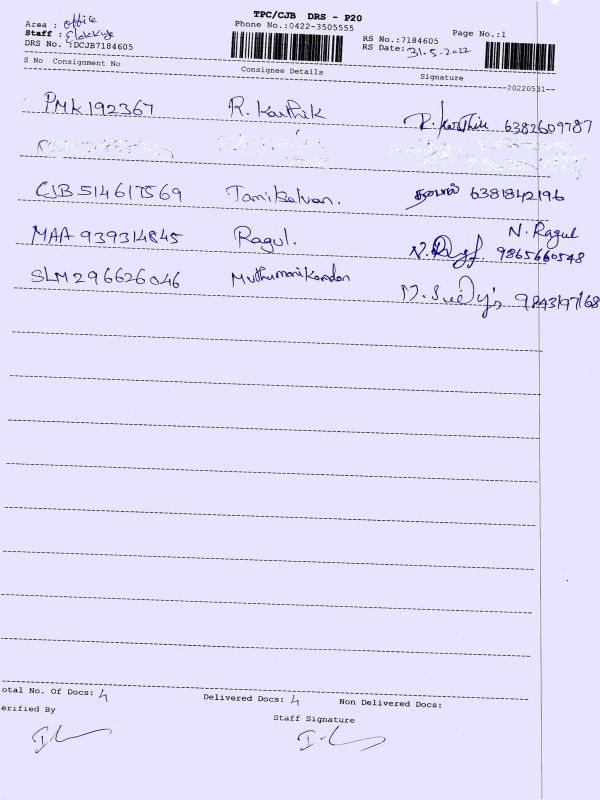 TPC/CJB DRS - P20
Area : office
Phone No.:0422-3505555
Page No.:1
Staff : Elakkiya
RS No.:7184605
DRS No. :DCJB7184605
RS Date: 31.5.2022
S No Consignment No Consignee Details Signature
--20220531--
PMK 192367 R. Karthik R. Karthik 6382609787
CJB 514617569 Tamilselvan. 6381842196
N. Ragul
MAA 939314845 Ragul. 9865660548
SLM 296626046 Muthumanikandan 9843197168
otal No. Of Docs: 4 Delivered Docs: 4 Non Delivered Docs:
erified By Staff Signature